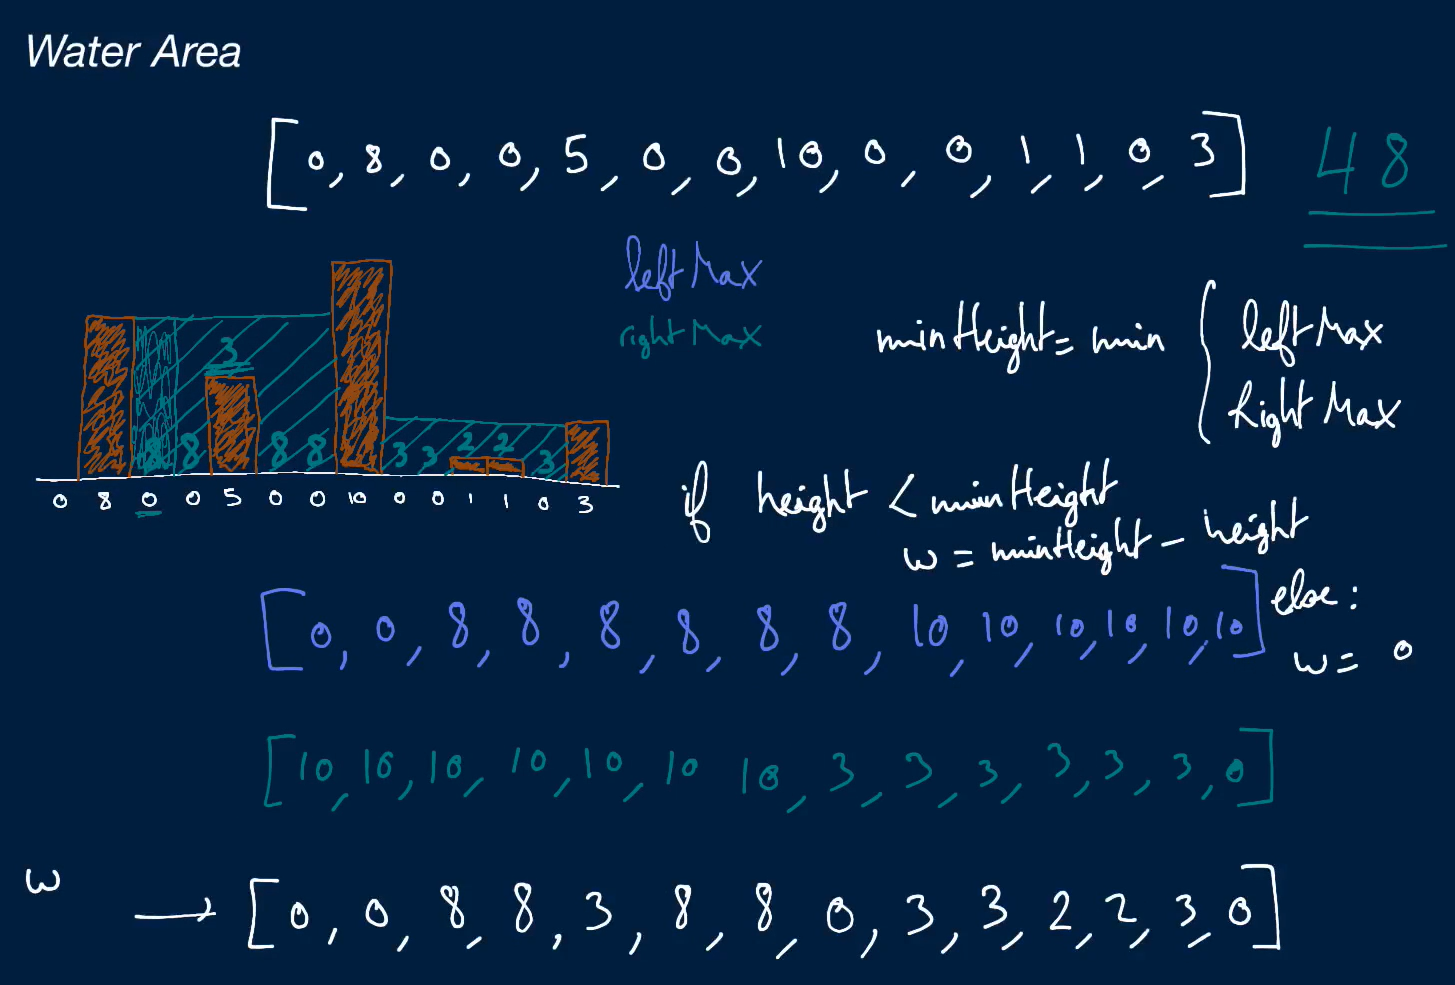 Water Area
[0, 8, 0, 0, 5, 0, 0, 10, 0, 0, 1, 1, 0, 3]
48
leftMax
rightMax
minHeight = min { leftMax
RightMax
3
8 8 8 8 3 3 2 2 3
0 8 0 0 5 0 0 10 0 0 1 1 0 3
if height < minHeight
w = minHeight - height
else:
w = 0
[0, 0, 8, 8, 8, 8, 8, 8, 10, 10, 10, 10, 10, 10]
[10, 10, 10, 10, 10, 10 10, 3, 3, 3, 3, 3, 3, 0]
w → [0, 0, 8, 8, 3, 8, 8, 0, 3, 3, 2, 2, 3, 0]